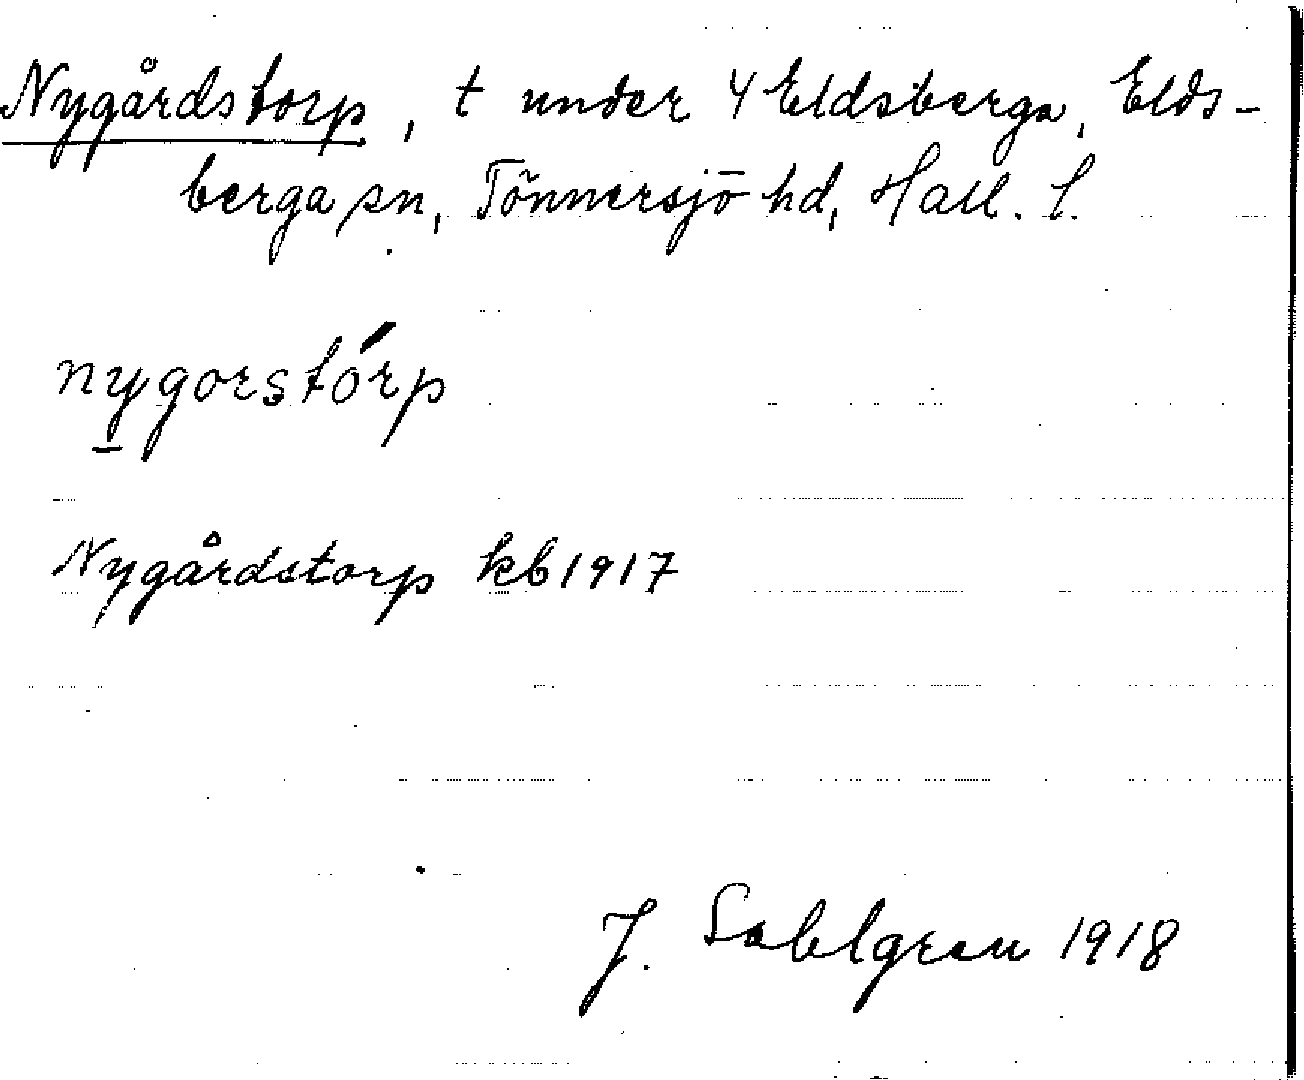 Nygårdstorp, t under 4 Eldsberga, Elds-
berga sn, Tönnersjö hd, Hall. l.
nygorstórp
Nygårdstorp kb 1917
J. Sahlgren 1918